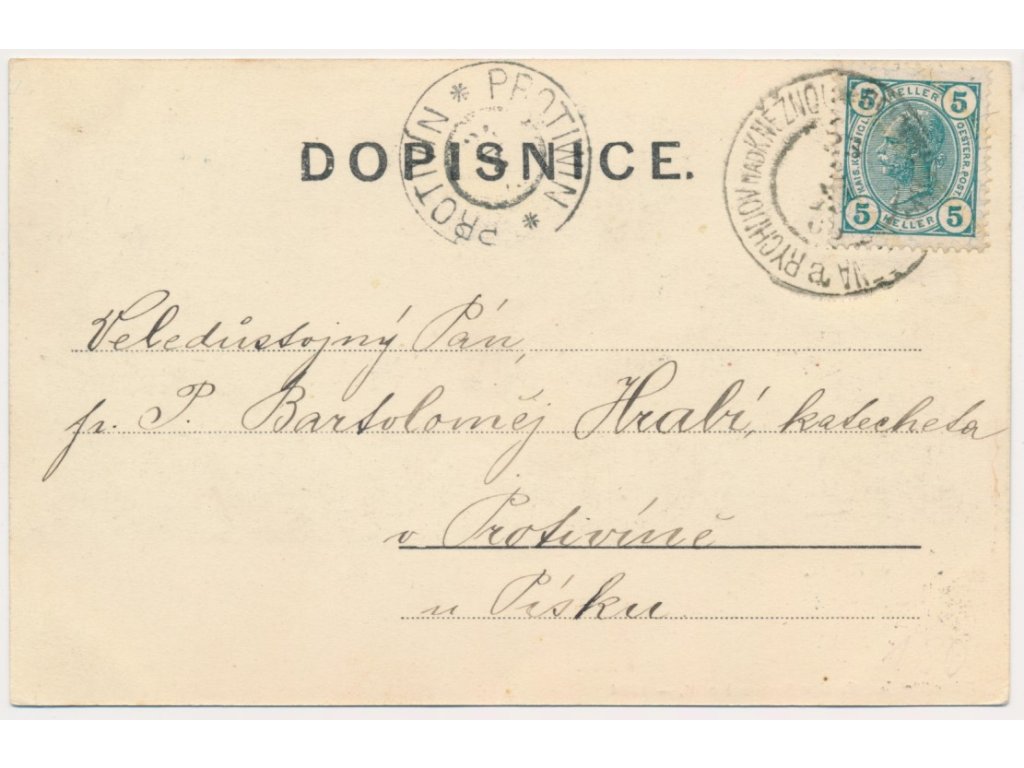 PROTIWIN * PROTIVÍN *
DOPISNICE.
RYCHNOV NAD KNĚŽNOU
5 HELLER 5
KAIS. KOENIGL. OESTERR. POST.
5 HELLER 5
Veledůstojný Pán,
p. P. Bartoloměj Hrabí, katecheta
v Protivíně
u Písku